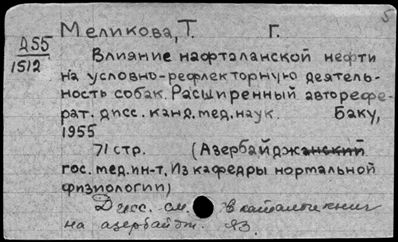 5
Меликова, Т. Г.
Д55
1512
Влияние нафталанской нефти
на условно-рефлекторную деятель-
ность собак. Расширенный авторефе-
рат. дисс. канд. мед. наук. Баку,
1955
71 стр. (Азербайджанский
гос. мед. ин-т, Из кафедры нормальной
физиологии)
Дисс. см. в каталоге книг
на азербайдж. яз.